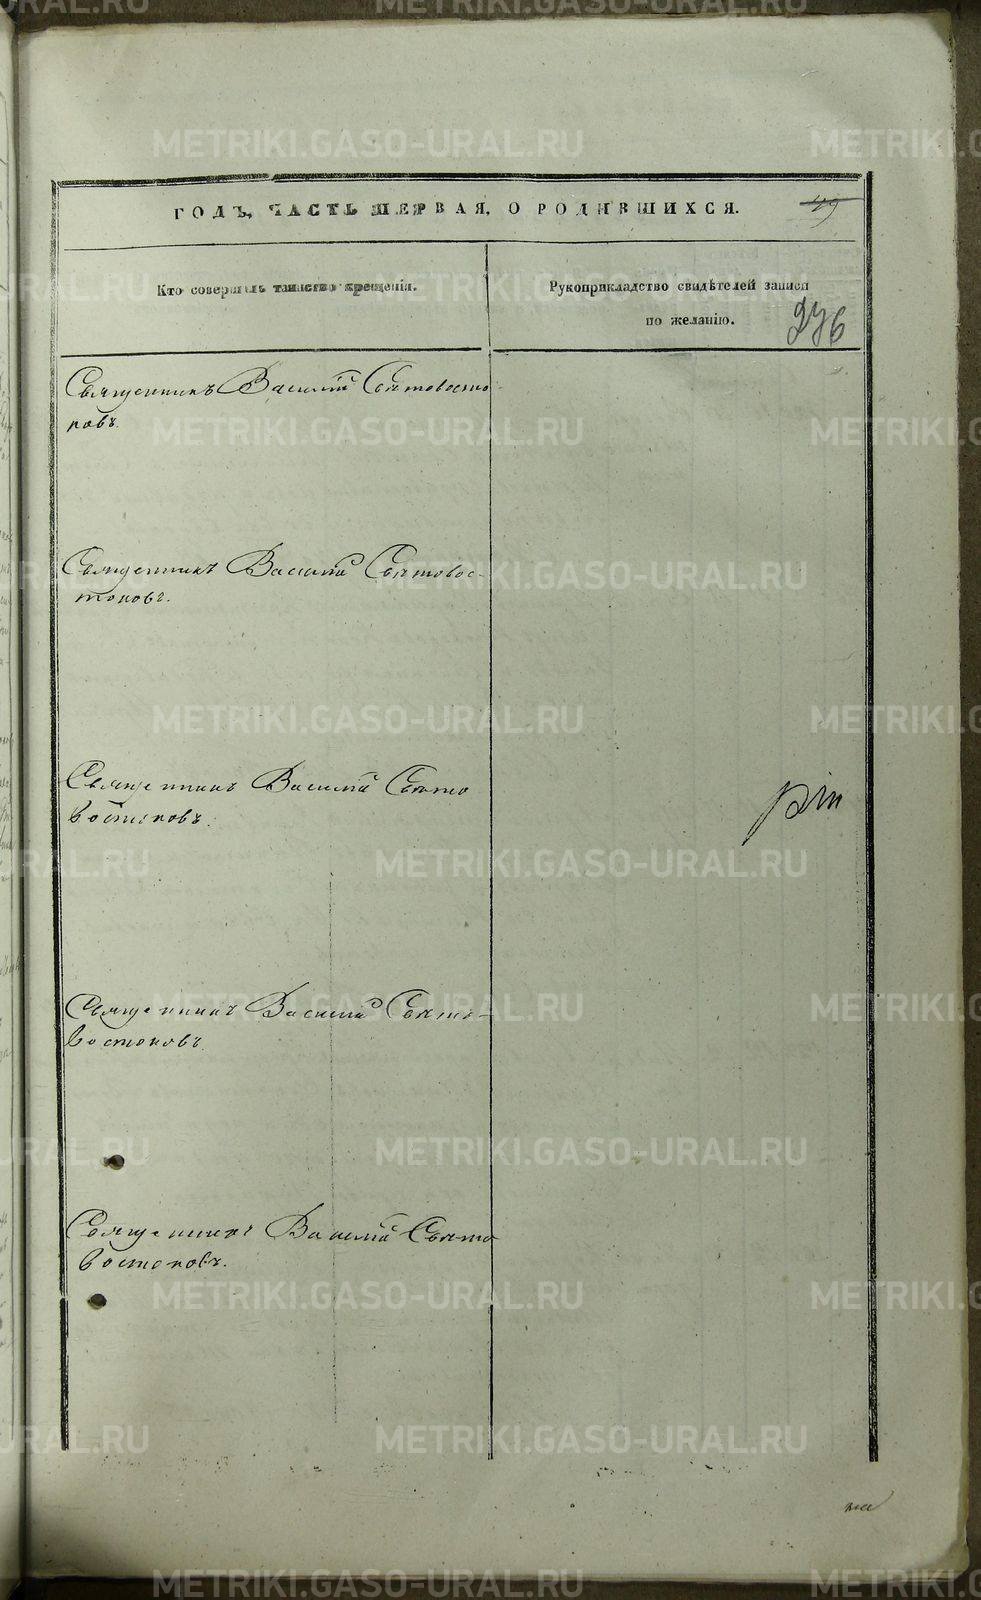 ГОДЪ, ЧАСТЬ ПЕРВАЯ, О РОДИВШИХСЯ.
49
Кто совершалъ таинство крещенія.
Рукоприкладство свидѣтелей записи
по желанію.
276
Священникъ Василій Святовосто-
ковъ.
Священникъ Василій Святовос-
токовъ.
Священникъ Василій Свято
востоковъ.
Священникъ Василій Свято-
востоковъ.
Священникъ Василій Свято
востоковъ.
METRIKI.GASO-URAL.RU